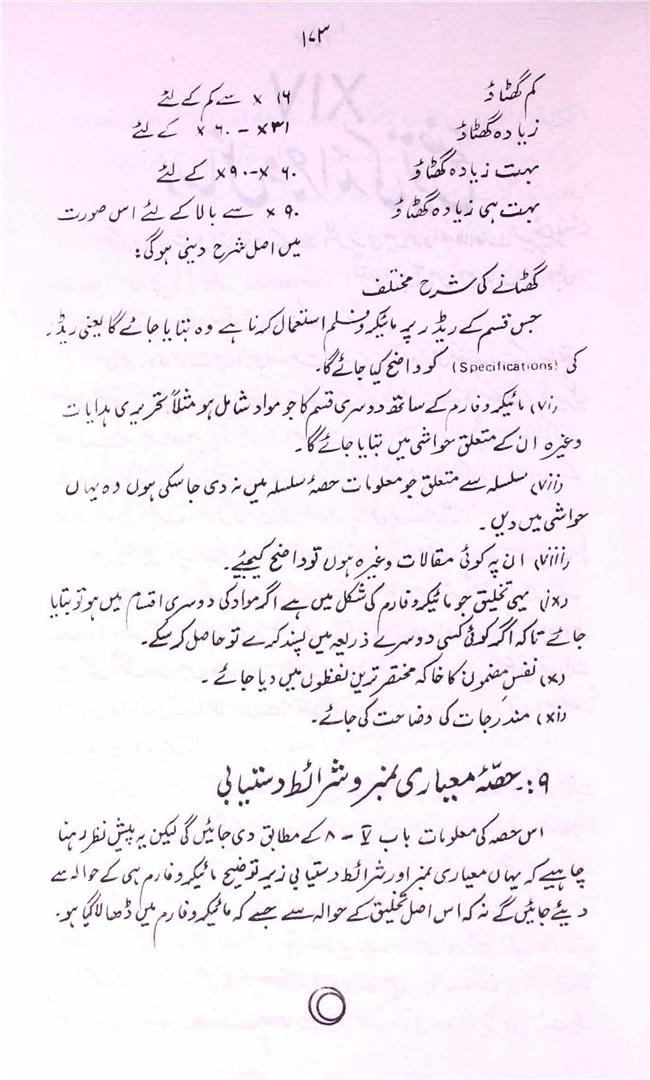 ۱۷۳
کم گھٹاؤ ۱۶ × سے کم کے لئے
زیادہ گھٹاؤ ۳۱× – ۶۰ × کے لئے
بہت زیادہ گھٹاؤ ۶۰ ×–۹۰ × کے لئے
بہت ہی زیادہ گھٹاؤ ۹۰ × سے بالا کے لئے اس صورت
میں اصل شرح دینی ہوگی:
گھٹانے کی شرح مختلف
جس قسم کے ریڈر پر مائیکروفلم استعمال کرنا ہے وہ بتایا جائے گا یعنی ریڈر
کی (Specifications) کو واضح کیا جائے گا۔
(vi) مائیکروفارم کے ساتھ دوسری قسم کا جو مواد شامل ہو مثلاً تحریری ہدایات
وغیرہ ان کے متعلق حواشی میں بتایا جائے گا۔
(vii) سلسلہ سے متعلق جو معلومات حصۂ سلسلہ میں نہ دی جاسکی ہوں وہ یہاں
حواشی میں دیں۔
(viii) ان پہ کوئی مقالات وغیرہ ہوں تو واضح کیجیے۔
(ix) یہی تخلیق جو مائیکروفارم کی شکل میں ہے اگر مواد کی دوسری اقسام میں ہو تو بتایا
جائے تاکہ اگر کوئی کسی دوسرے ذریعہ میں پسند کرے تو حاصل کرسکے۔
(x) نفس مضمون کا خاکہ مختصر ترین لفظوں میں دیا جائے۔
(xi) مندرجات کی وضاحت کی جائے۔
۹:۔ حصّۂ معیاری نمبر و شرائط دستیابی
اس حصہ کی معلومات باب V – ۸ کے مطابق دی جائیں گی لیکن یہ پیش نظر رہنا
چاہیے کہ یہاں معیاری نمبر اور شرائط دستیابی زیر توضیح مائیکروفارم ہی کے حوالہ سے
دیئے جائیں گے نہ کہ اس اصل تخلیق کے حوالہ سے جسے کہ مائیکروفارم میں ڈھالا گیا ہو۔